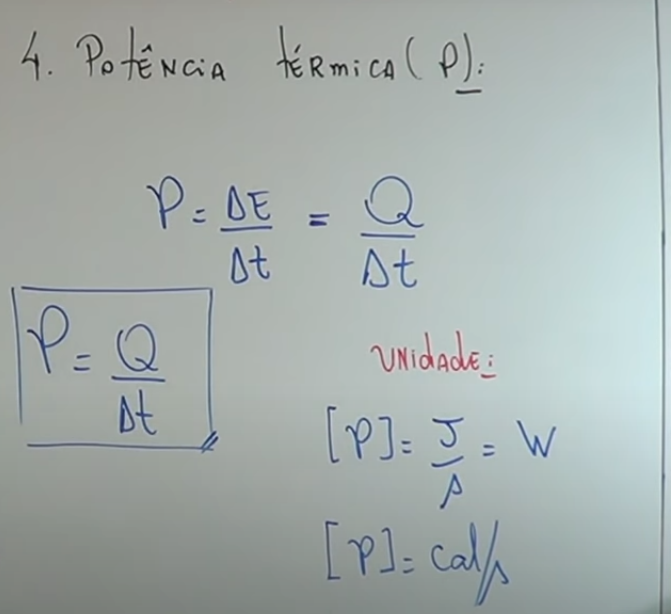 4. Potência térmica (P):
P = ΔE/Δt = Q/Δt
P = Q/Δt
Unidade:
[P] = J/s = W
[P] = cal/s